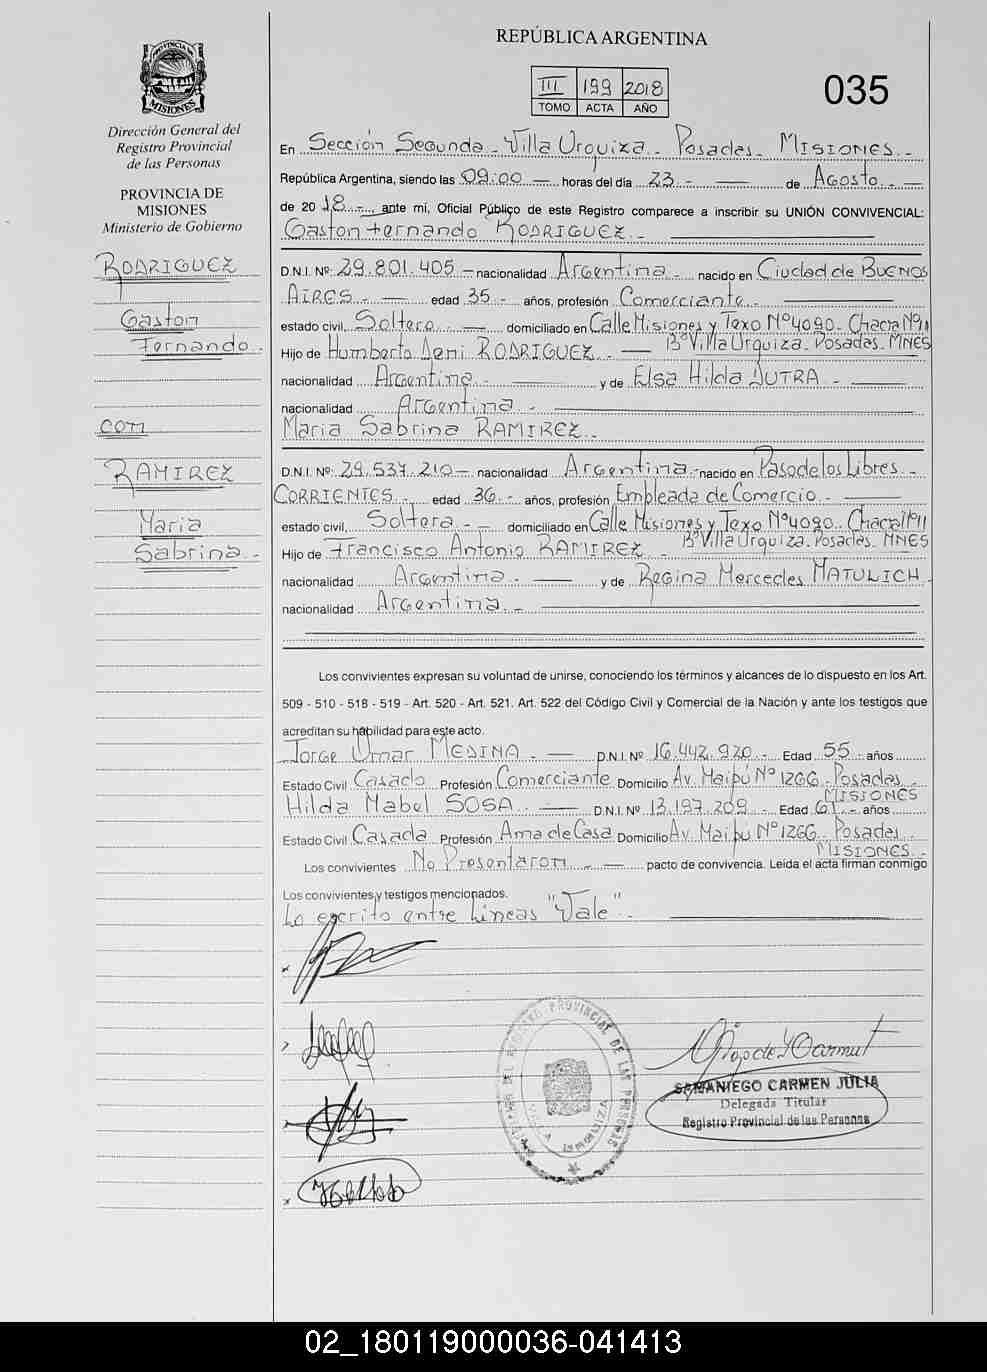 REPÚBLICA ARGENTINA
III 199 2018
TOMO ACTA AÑO
035
PROVINCIA DE
MISIONES
Dirección General del
Registro Provincial
de las Personas
PROVINCIA DE
MISIONES
Ministerio de Gobierno
RODRIGUEZ
Gaston
Fernando.
con
RAMIREZ
Maria
Sabrina -
En Sección Segunda - Villa Urquiza - Posadas - MISIONES. -
República Argentina, siendo las 09:00 — horas del día 23 - — de Agosto. -
de 20 18 -, ante mí, Oficial Público de este Registro comparece a inscribir su UNIÓN CONVIVENCIAL:
Gaston Fernando RODRIGUEZ. -
D.N.I. Nº: 29.801.405 — nacionalidad Argentina. - nacido en Ciudad de BUENOS
AIRES. - — edad 35 - años, profesión Comerciante. -
estado civil, Soltero — domiciliado en Calle Misiones y Texo Nº4090. Chacra Nº11
Bº Villa Urquiza. Posadas. MNES
Hijo de Humberto Demi RODRIGUEZ. -
nacionalidad Argentina. - y de Elsa Hilda DUTRA. -
nacionalidad Argentina. -
Maria Sabrina RAMIREZ. -
D.N.I. Nº: 29.537.210 — nacionalidad Argentina. - nacido en Paso de los Libres. -
CORRIENTES. - edad 36. - años, profesión Empleada de Comercio. -
estado civil, Soltera. - domiciliado en Calle Misiones y Texo Nº4090. Chacra Nº11
Bº Villa Urquiza. Posadas. MNES
Hijo de Francisco Antonio RAMIREZ
nacionalidad Argentina. - y de Regina Mercedes MATULICH.
nacionalidad Argentina. -
Los convivientes expresan su voluntad de unirse, conociendo los términos y alcances de lo dispuesto en los Art.
509 - 510 - 518 - 519 - Art. 520 - Art. 521. Art. 522 del Código Civil y Comercial de la Nación y ante los testigos que
acreditan su habilidad para este acto.
Jorge Omar MEDINA. - D.N.I. Nº 16.442.920. - Edad 55 años
Estado Civil Casado Profesión Comerciante Domicilio Av. Maipú Nº 1266. Posadas
MISIONES
Hilda Mabel SOSA. - D.N.I. Nº 13.197.209 - Edad 61. - años
Estado Civil Casada Profesión Ama de Casa Domicilio Av. Maipú Nº 1266. Posadas.
MISIONES. -
Los convivientes No Presentaron. - pacto de convivencia. Leída el acta firman conmigo
Los convivientes y testigos mencionados.
Lo escrito entre Líneas "Vale". -
SAMANIEGO CARMEN JULIA
Delegada Titular
Registro Provincial de las Personas
02_180119000036-041413